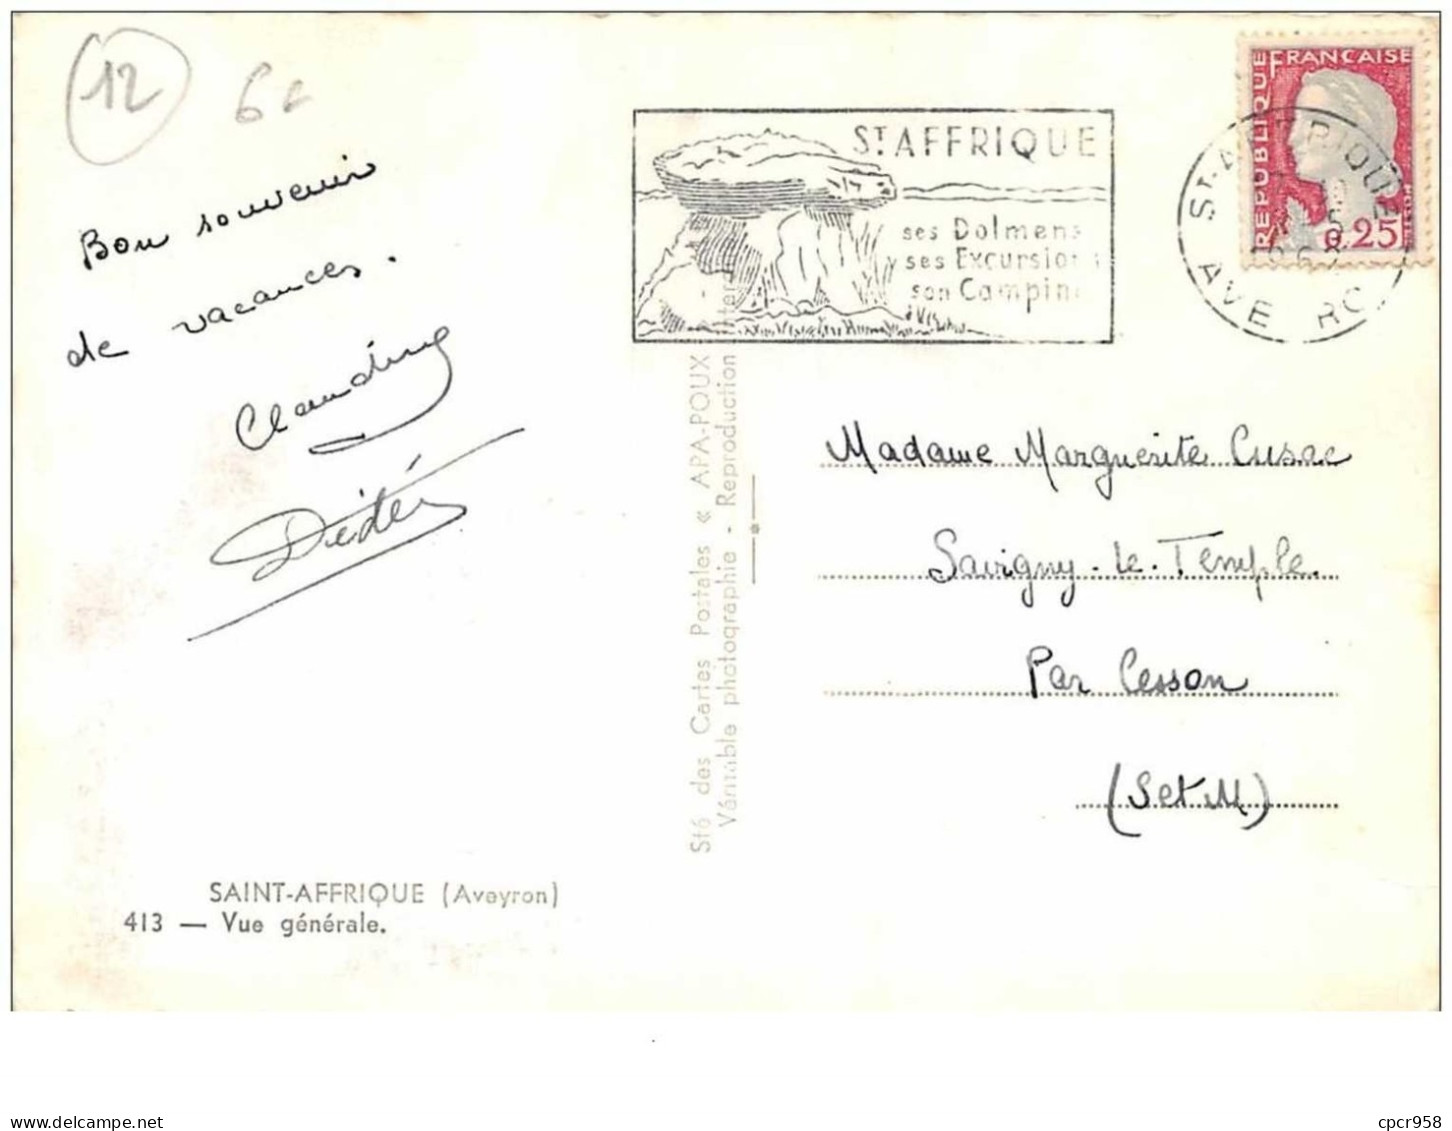 12
6
Bon souvenir
de vacances.
Claudine
Dédée
ST AFFRIQUE
ses Dolmens
ses Excursions
son Camping
REPUBLIQUE FRANÇAISE
0.25
AVEYRO
Sté des Cartes Postales « APA-POUX
Véritable photographie - Reproduction inter
Madame Marguerite Cusac
Savigny-le-Temple.
Par Cesson
(S et M)
SAINT-AFFRIQUE (Aveyron)
413 — Vue générale.
cpcr958
delcampe.net